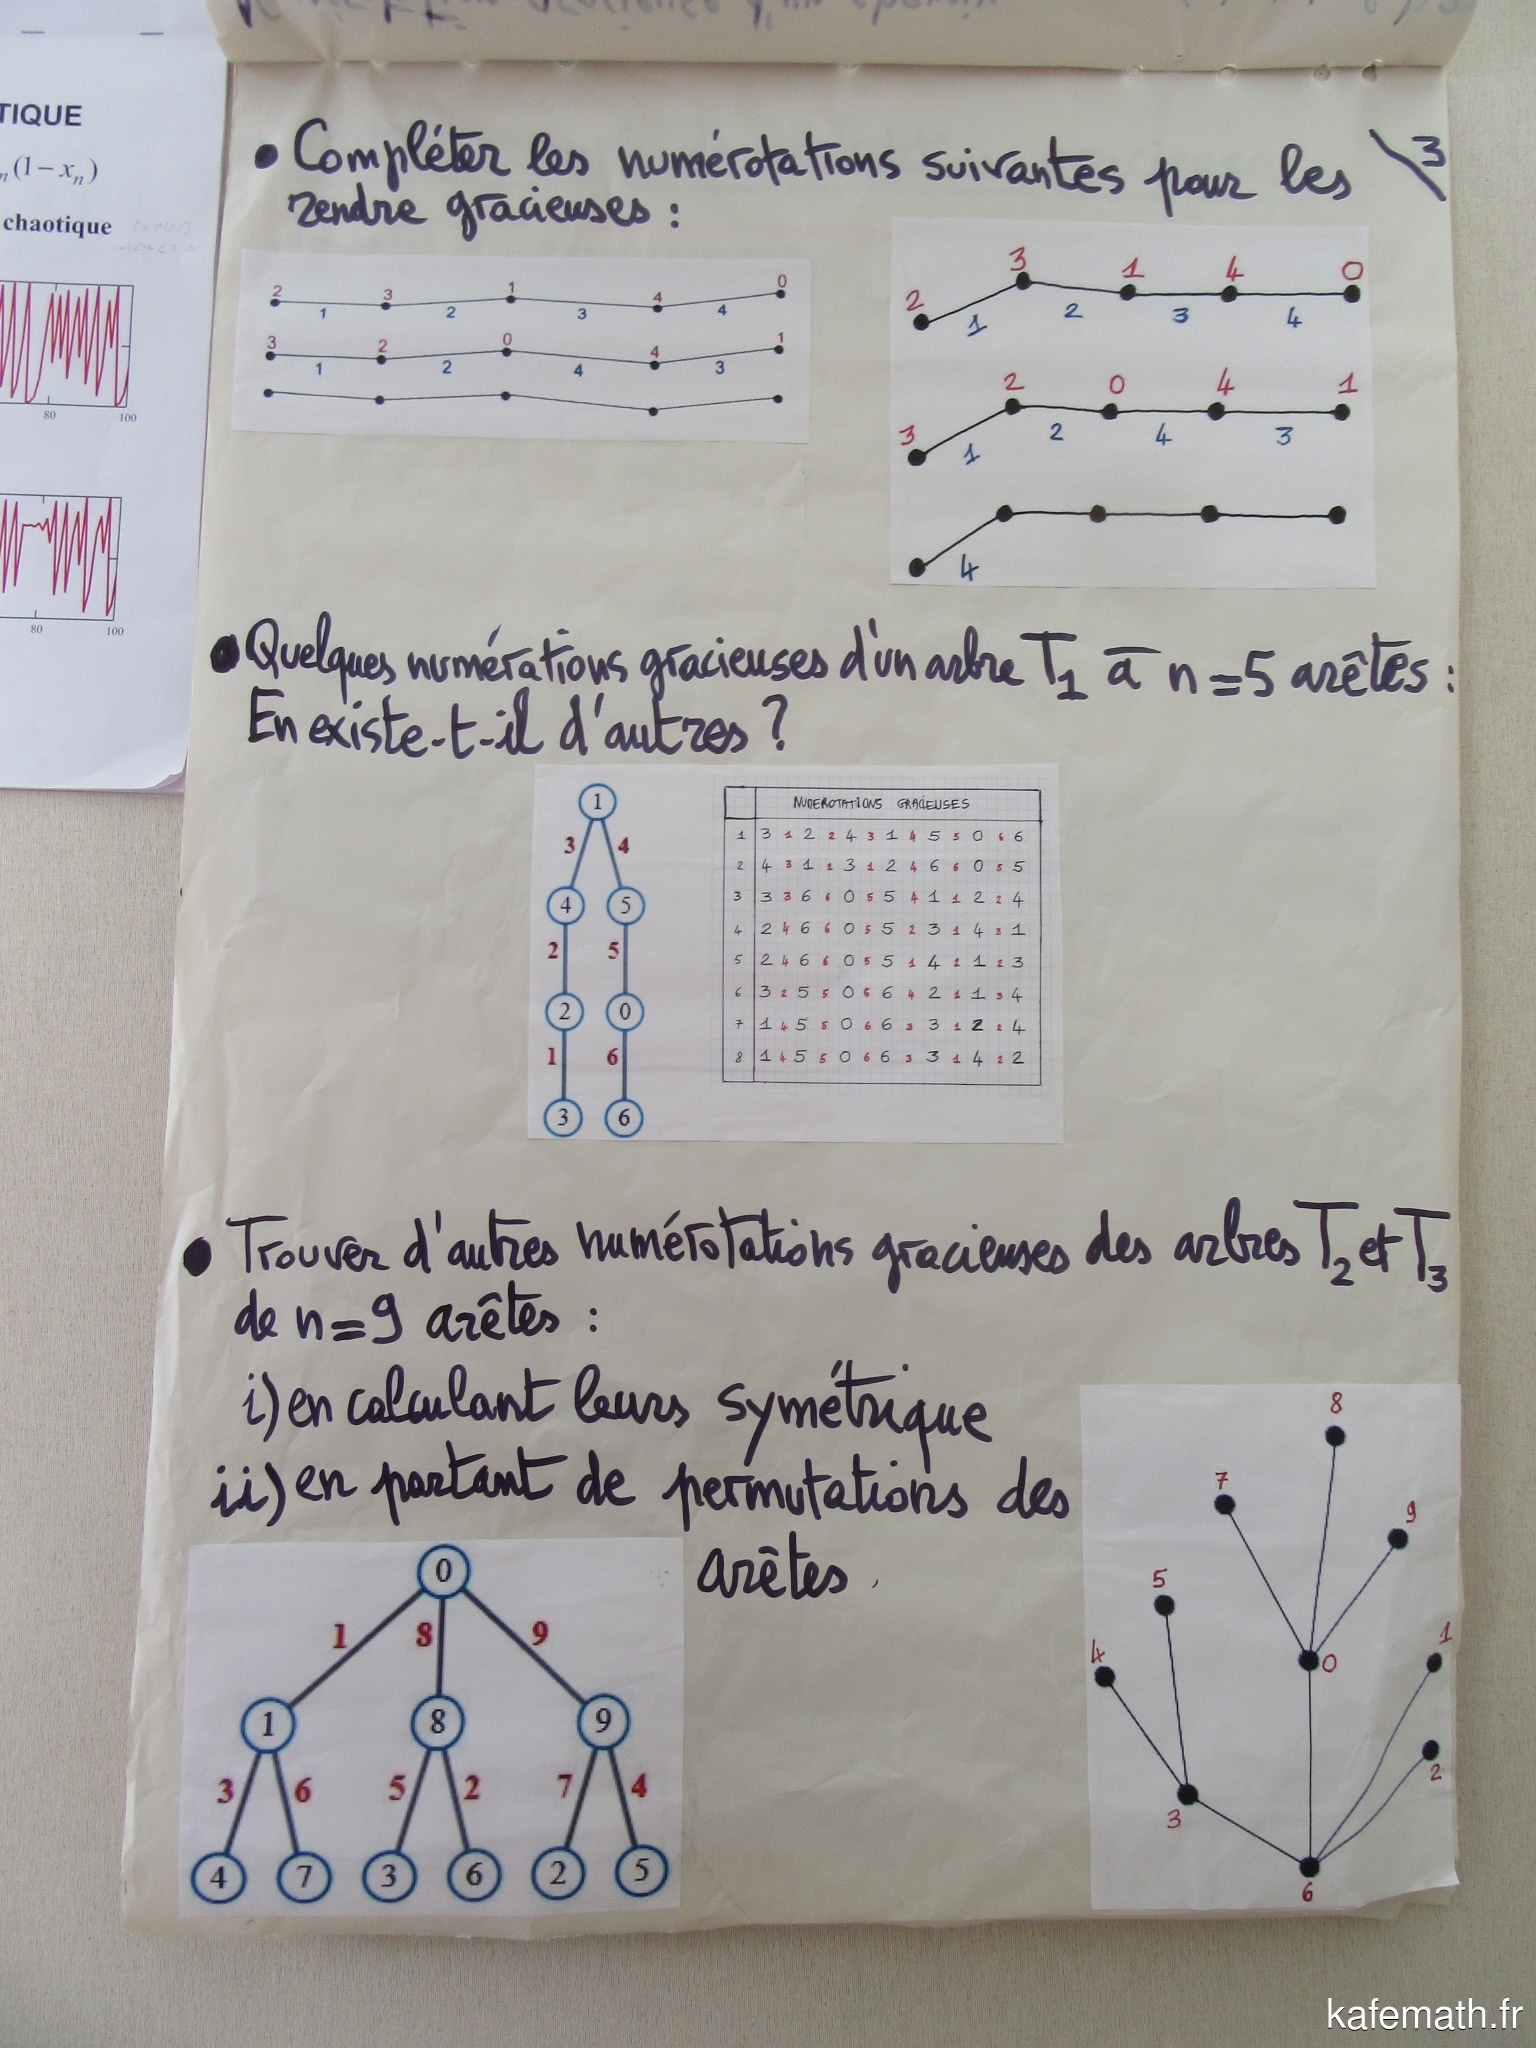 TIQUE
n(1-xn)
chaotique
80
100
80
100
\3
• Compléter les numérotations suivantes pour les
rendre gracieuses :
2 3 1 4 0
1 2 3 4
3 2 0 4 1
1 2 4 3
2 3 1 4 0
1 2 3 4
3 2 0 4 1
1 2 4 3
4
• Quelques numérations gracieuses d'un arbre T1 à n=5 arêtes :
En existe-t-il d'autres ?
1
3 4
4 5
2 5
2 0
1 6
3 6
NUMEROTATIONS GRACIEUSES
1 3 1 2 2 4 3 1 4 5 5 0 6 6
2 4 3 1 2 3 1 2 4 6 6 0 5 5
3 3 3 6 6 0 5 5 4 1 1 2 2 4
4 2 4 6 6 0 5 5 2 3 1 4 3 1
5 2 4 6 6 0 5 5 1 4 2 1 2 3
6 3 2 5 5 0 6 6 4 2 1 1 3 4
7 1 4 5 5 0 6 6 3 3 1 2 2 4
8 1 4 5 5 0 6 6 3 3 1 4 2 2
• Trouver d'autres numérotations gracieuses des arbres T2 et T3
de n=9 arêtes :
i) en calculant leurs symétrique
ii) en partant de permutations des
arêtes.
0
1 8 9
1 8 9
3 6 5 2 7 4
4 7 3 6 2 5
8
7
9
5
4
0
1
2
3
6
kafemath.fr